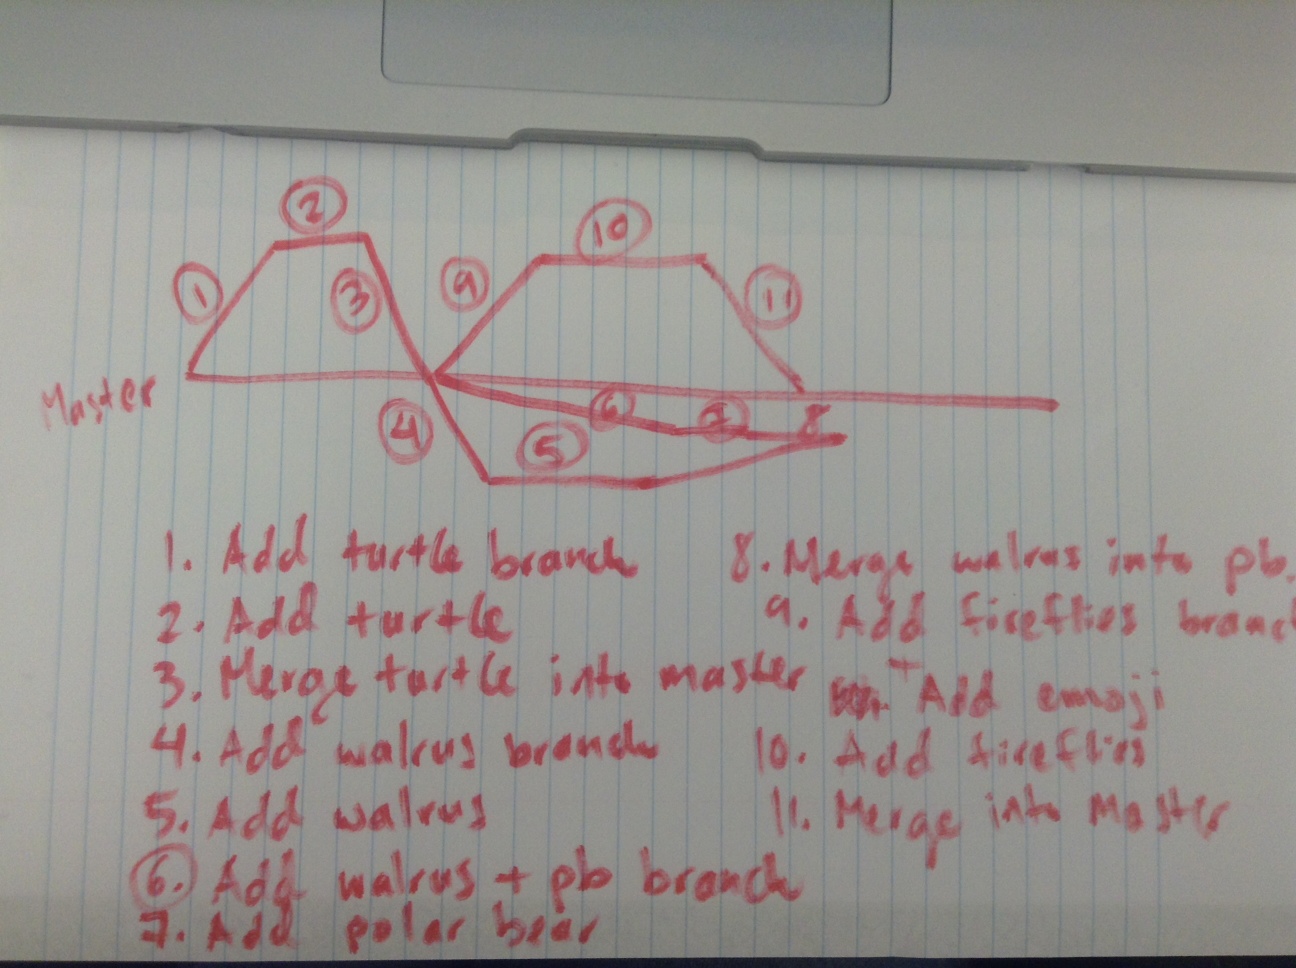 Master
1
2
3
4
9
5
6
10
7
11
8
1. Add turtle branch
2. Add turtle
3. Merge turtle into master
4. Add walrus branch
5. Add walrus
6. Add walrus + pb branch
7. Add polar bear
8. Merge walrus into pb.
9. Add fireflies branch
+ Add emoji
10. Add fireflies
11. Merge into Master